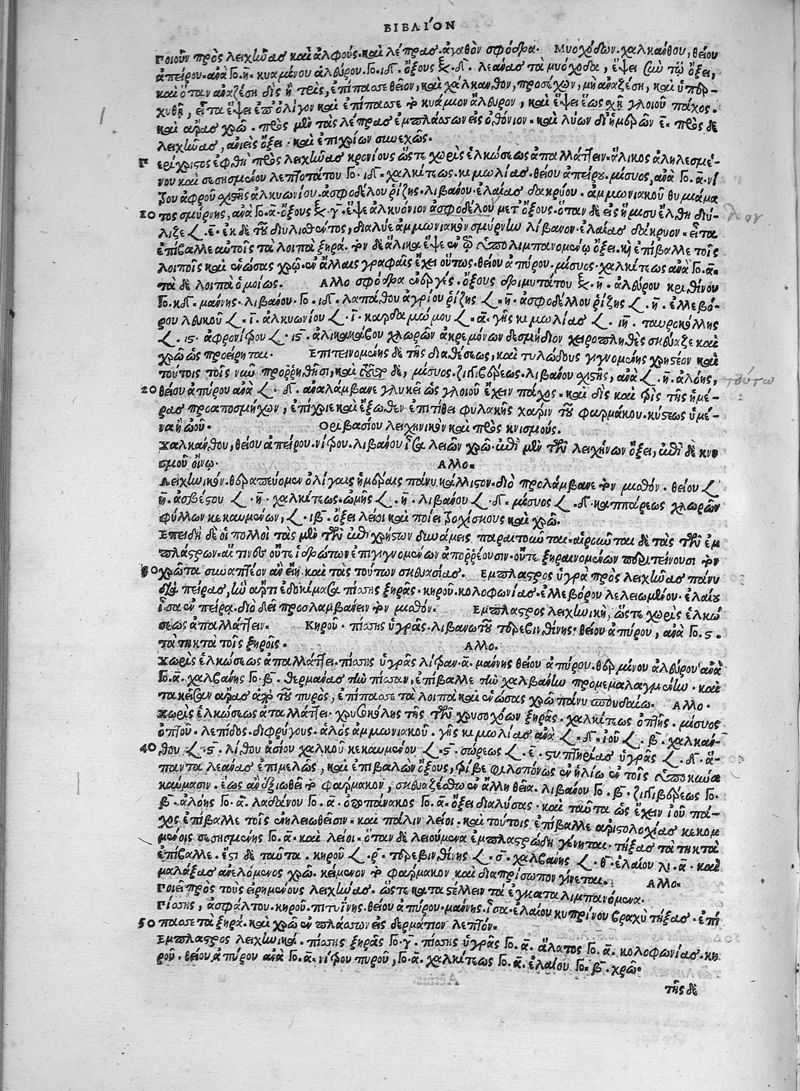 ΒΙΒΛΙΟΝ
ποιοῦν πρὸς λειχῆνας καὶ ἀλφούς. καὶ λέπρας. ἀγαθὸν σφόδρα. Μυοχόδων. χαλκάνθου, θείου
ἀπείρου. ἀνὰ γο. η. κυαμίνου ἀλεύρου. ὄξους λεάνας τὰ μυόχοδα, ἕψει σὺν τῷ ὄξει,
καὶ ὅταν ἀναζέσῃ δὶς ἢ τρὶς, ἐπίπασσε θεῖον, καὶ χάλκανθον, προσέχων, μὴ ἀναζέσῃ, καὶ ὑπερ-
χυθῇ, εἶτα ἕψει ἐπ' ὀλίγον καὶ ἐπίπασσε τὸ κυάμινον ἄλευρον, καὶ ἕψει ἕως σχῇ γλοιοῦ πάχος.
καὶ οὕτως χρῶ. πρὸς μὲν τὰς λέπρας ἐμπλάσσων εἰς ὀθόνιον. καὶ λύων δι' ἡμερῶν ε. πρὸς δὲ
λειχῆνας, ἀνιεὶς ὄξει. καὶ ἐπιχρίων συνεχῶς.
πρὸς λειχῆνας ὥστε χωρὶς ἑλκώσεως ἀπαλλάττειν. ἁλικὸς ἀληλεσμέ-
νου καὶ σεσησμένου λεπτοτάτου γο. χαλκίτεως. κιμωλίας. θείου ἀπείρου. μίσυος, ἀνὰ γο. α. νί-
τρου ἀφροῦ σχιστῆς ἀλκυωνίου. ἀσφοδέλου ῥίζης. λιβάνου. ἐλαίας δακρύου. ἀμμωνιακοῦ θυμιάμα
10 τος σμύρνης, ἀνὰ γο. α. ὄξους γ. ἕψε ἀλκυόνιον ἀσφοδέλου μετ' ὄξους. ὅταν δὲ εἰς ἥμισυ ἔλθῃ διύ-
λιζε ἐκ δὲ τοῦ διυλισθέντος, διαλύε ἀμμωνιακὸν σμύρναν λίβανον. ἐλαίας δάκρυον. εἶτα
ἐπίβαλλε αὐτοῖς τὰ λοιπὰ ξηρά. τὴν δὲ ἅλικα ἕψε ἐν τῷ ὑπολιμπανομένῳ ὄξει. καὶ ἐπίβαλλε τοῖς
λοιποῖς καὶ ἑνώσας χρῶ. ἐν ἄλλαις γραφαῖς ἔχει οὕτως. θείου ἀπύρου. μίσυος. χαλκίτεως ἀνὰ γο. α.
τὰ δὲ λοιπὰ ὁμοίως. Ἄλλο σφόδρα ἐνεργές. ὄξους δριμυτάτου η. ἀλεύρου κριθίνου
μάννης. λιβάνου. γο. λαπάθου ἀγρίου ῥίζης η. ἀσφοδέλου ῥίζης η. ἐλλεβό-
ρου λευκοῦ ι. ἀλκυωνίου ι. καρδαμώμου α. γῆς κιμωλίας ιη. ταυροκόλλης
ις. ἀφρονίτρου ις. χλωρῶν ἀκρεμόνων δεσμίδιον χειροπληθὲς σκεύαζε καὶ
χρῶ ὡς προείρηται. Ἐπιτεινομένης δὲ τῆς διαθέσεως, καὶ τυλώδους γινομένης χρηστέον καὶ
τούτοις τοῖς νῦν προρρηθῆσι, καὶ τόδε δέ, μίσυος. ζιγγιβέρεως. λιβάνου σχιστῆς, ἀνὰ η. ἀλόης, τούτω
20 θείου ἀπύρου ἀνὰ ἀναλάμβανε γλυκεῖ ὡς γλοιοῦ ἔχειν πάχος. καὶ δὶς καὶ τρὶς τῆς ἡμέ-
ρας προαποσμήχων, ἐπίχριε καὶ ἔξωθεν ἐπιτίθει φυλακῆς χάριν τοῦ φαρμάκου. κύστεως ὑμέ-
να ἢ ὠοῦ. Ὀρειβασίου λειχηνικὸν καὶ πρὸς κνησμούς.
Χαλκάνθου, θείου ἀπείρου. νίτρου. λιβάνου ἴσα λειῶν χρῶ. ἐπὶ μὲν τῶν λειχήνων ὄξει, ἐπὶ δὲ κνη-
σμοῦ οἴνῳ. Ἄλλο.
Λειχηνικὸν. θεραπεύομεν ὀλίγαις ἡμέραις πάνυ κάλλιστον. διὸ προλάμβανε τὸν μισθόν. θείου
η. ἀσβέστου η. χαλκίτεως. ὠμῆς η. λιβάνου μίσυος καππάρεως χλωρῶν
φύλλων κεκαυμένων, ιβ. ὄξει λείου καὶ ποίει τροχίσκους καὶ χρῶ.
Ἐπειδὴ δὲ οἱ πολλοὶ τὰς μὲν τῶν ἐπιχρίστων δυνάμεις παραιτοῦνται. αἱροῦνται δὲ τὰς τῶν ἐμ
πλάστρων. αἵτινες οὔτε ἱδρώτων ἐπιγινομένων ἀπορρέουσιν. οὔτε ξηραινομένων περιτείνουσι τὸν
30 χρῶτα συναπτέον ἂν εἴη. καὶ τὰς τούτων σκευασίας. Ἔμπλαστρος ὑγρὰ πρὸς λειχῆνας πάνυ
διὰ πείρας, ἣν αὐτὴ ἐδοκίμασα πίσσης ξηρᾶς. κηροῦ. κολοφωνίας. ἐλλεβόρου λελειωμένου. ἐλαίου
ἴσα ἐν πείρᾳ. διὸ δεῖ προσλαμβάνειν τὸν μισθόν. Ἔμπλαστρος λειχηνικὴ, ὥστε χωρὶς ἑλκώ
σεως ἀπαλλάττειν. Κηροῦ. πίσσης ὑγρᾶς. λιβανωτοῦ τερεβινθίνης. θείου ἀπύρου, ἀνὰ γο. ς.
τὰ τηκτὰ τοῖς ξηροῖς. Ἄλλο.
Χωρὶς ἑλκώσεως ἀπαλλάττει. πίσσης ὑγρᾶς λίτραν. α. μάννης θείου ἀπύρου. θερμίνου ἀλεύρου ἀνὰ
γο. α. χαλβάνης γο. β. θερμάνας τὴν πίσσαν, ἐπίβαλλε τῇ χαλβάνῃ προμεμαλαγμένῃ. καὶ
τακεῖσαν ἄρας ἀπὸ τοῦ πυρὸς, ἐπίπασσε τὰ λοιπὰ καὶ ἑνώσας χρῶ πάνυ σπουδαίῳ. Ἄλλο.
Χωρὶς ἑλκώσεως ἀπαλλάττει. χρυσοκόλλης τῆς τῶν χρυσοχόων ξηρᾶς. χαλκίτεως ὀπτῆς. μίσυος
ὀπτοῦ. λεπίδος. διφρύγους. ἁλὸς ἀμμωνιακοῦ. γῆς κιμωλίας ἀνὰ ἰοῦ β. χαλκάν-
40 θου. ς. λίθου ἀσίου χαλκοῦ κεκαυμένου ς. σώρεως ε. στυπτηρίας ὑγρᾶς ἅ-
παντα λεάνας ἐπιμελῶς, καὶ ἐπιβαλὼν ὄξους, τρῖβε φιλοπόνως ἐν ἡλίῳ ἐν τοῖς ὑπὸ κύνα
καύμασιν. ἕως ἂν ἀξιωθῇ τὸ φάρμακον, σκευάζεσθω ἐν ἄλλῃ θυίᾳ. λιβάνου γο. β. ζιγγιβέρεως γο.
β. ἀλόης γο. α. λαδάνου γο. α. ὀποπάνακος γο. α. ὄξει διαλύσας. καὶ ταῦτα ὡς ἔχειν ἰοῦ πά-
χος ἐπίβαλλε τοῖς ἐνλειωθεῖσιν. καὶ πάλιν λείου. καὶ τούτοις ἐπίβαλλε ἀριστολοχίας κεκομ-
μένης σεσησμένης γο. α. καὶ λείου. ὅταν δὲ λειούμενα ἐμπλαστρώδη γένηται. τήξας τὰ τηκτὰ
ἐπίβαλλε. ἔστι δὲ ταῦτα. κηροῦ ρ. τερεβινθίνης σ. χαλβάνης θ. ἐλαίου λι. α. καὶ
μαλάξας ἀνελόμενος χρῶ. κείμενον τὸ φάρμακον καὶ διαπρίσιμον γίνεται. Ἄλλο.
Ποιεῖ πρὸς τοὺς εἰρημένους λειχῆνας. ὥστε καταστέλλειν τὰ ἐγκατα λιμπανόμενα.
Πίσσης, ἀσφάλτου. κηροῦ. πιτυΐνης. θείου ἀπύρου. μάννης. ἴσα. ἐλαίου κυπρίνου βραχὺ τήξας. ἐπί
50 πασσε τὰ ξηρὰ. καὶ χρῶ ἐμπλάσσων εἰς δερμάτιον λεπτόν.
Ἔμπλαστρος λειχηνική. πίσσης ξηρᾶς γο. γ. πίσσης ὑγρᾶς γο. α. ἅλατος γο. α. κολοφωνίας. κη
ροῦ. θείου ἀπύρου ἀνὰ γο. α. νίτρου πυροῦ, γο. α. χαλκίτεως γο. α. ἐλαίου γο. β. χρῶ.
τῆς δὲ